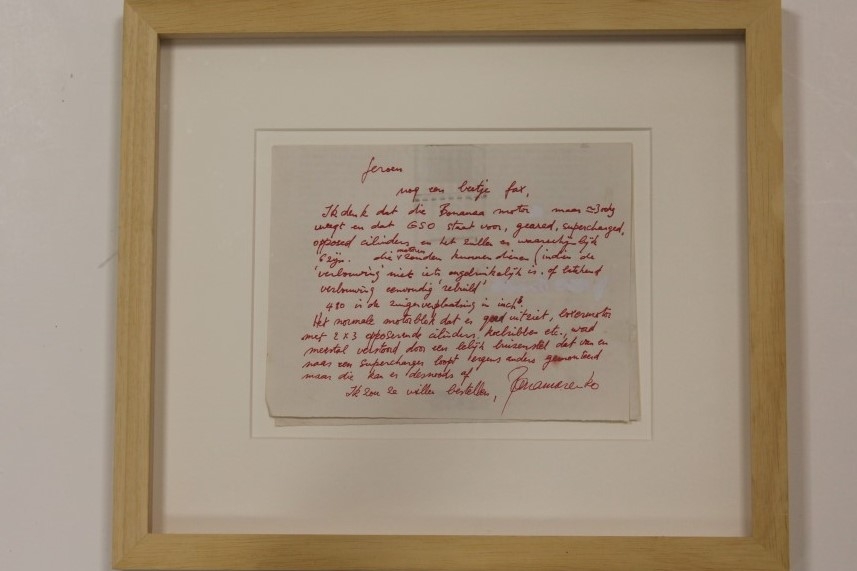 Jeroen
nog een beetje fax,
Ik denk dat die Bonanza motor maar
weegt en dat GSO staat voor, geared, supercharged,
opposed cilinders, en het zullen er waarschijnlijk
6 zijn. die motoren zouden kunnen dienen (indien de
'verbouwing' niet iets ongebruikelijk is. of betekend
verbouwing eenvoudig 'rebuild'
480 is de zuigerverplaatsing in inch³.
Het normale motorblok dat er goed uitziet, boxermotor
met 2 x 3 opposerende cilinders, koelribben etc., word
meestal verstoord door een lelijk buizenstel dat van en
naar een supercharger loopt ergens anders gemonteerd
maar die kan er desnoods af
Ik zou ze willen bestellen, Panamarenko